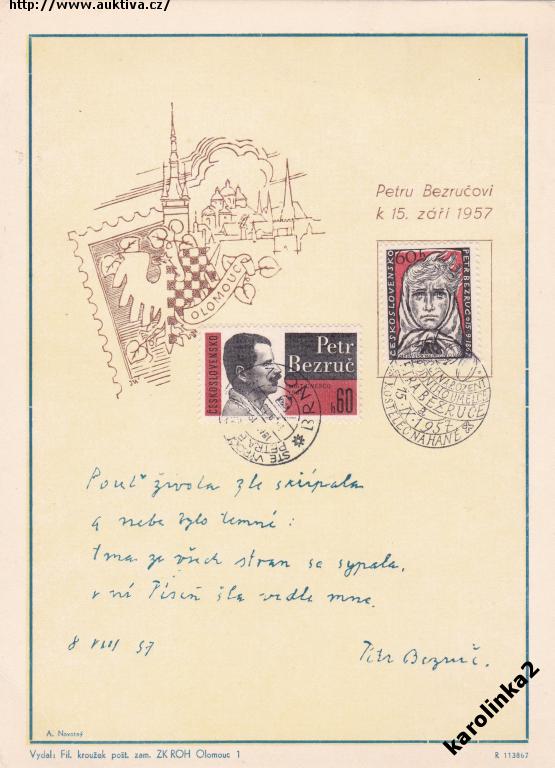 http://www.auktiva.cz/
Petru Bezručovi
k 15. září 1957
OLOMOUC
60h
ČESKOSLOVENSKO
PETR BEZRUČ
ČESKOSLOVENSKO
Petr
Bezruč
h60
BRNO
PETRA BEZRUČE
15.IX.1957
KOSTELEC NA HANÉ
Pouť života zle skřípala
a nebe bylo temné:
tma ze všech stran se sypala,
v ní Píseň šla vedle mne.
8 VIII 57
Petr Bezruč.
A. Novotný
Vydal: Fil. kroužek pošt. zam. ZK ROH Olomouc 1
R 113867
karolinka2